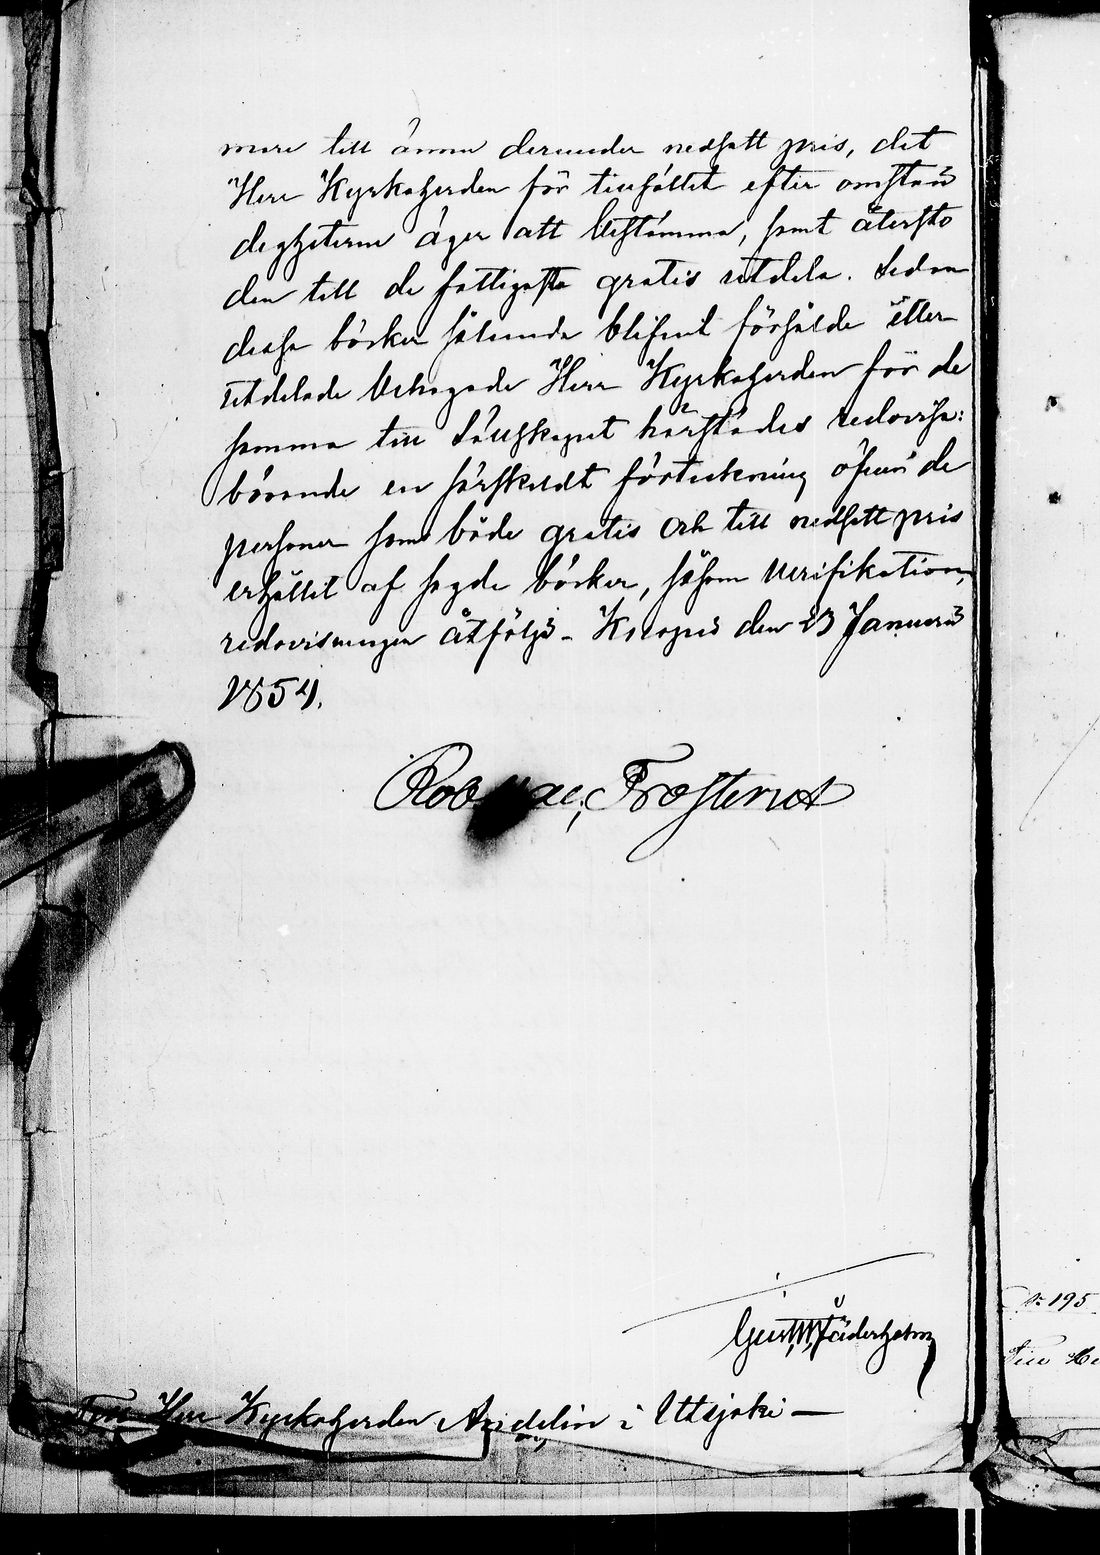 mare till ännu derunder nedsatt pris, det
Herr Kyrkoherden för tillfället efter omstän
digheterne äger att bestämma, samt återsto
den till de fattigaste gratis utdela. Sedan
dessa böcker sålunda blifvit försålde eller
utdelade behagade Herr Kyrkoherden för de
samma till Sällskapet härstädes redovisa:
börande en särskildt förteckning öfver de
personer som både gratis och till nedsatt pris
erhållit af sagde böcker, såsom Verifikation,
redovisningen åtfölja - Kuopio den 23 Januarii
1854.
Rob Frosterus
Gust. W. Söderholm
Till Herr Kyrkoherden Andelin i Utsjoki -
№ 195
Till He